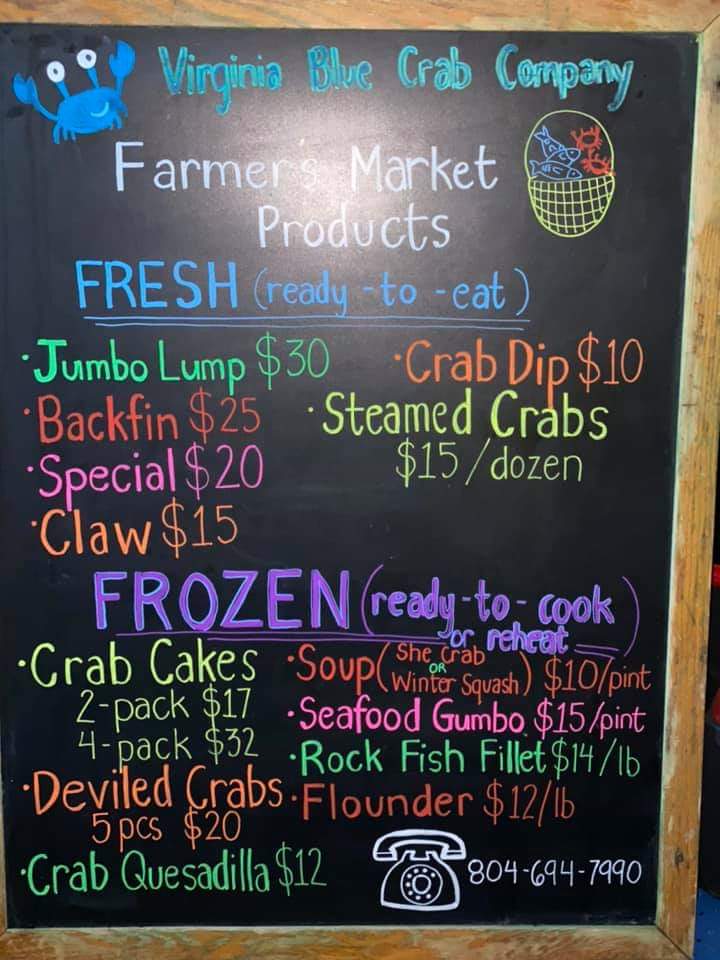 Virginia Blue Crab Company
Farmer's Market
Products
FRESH (ready-to-eat)
·Jumbo Lump $30
·Backfin $25
·Special $20
·Claw $15
·Crab Dip $10
·Steamed Crabs
$15/dozen
FROZEN (ready-to-cook
or reheat)
·Crab Cakes
2-pack $17
4-pack $32
·Deviled Crabs
5pcs $20
·Crab Quesadilla $12
·Soup (She Crab
OR
Winter Squash) $10/pint
·Seafood Gumbo $15/pint
·Rock Fish Fillet $14/lb
·Flounder $12/lb
804-694-7990